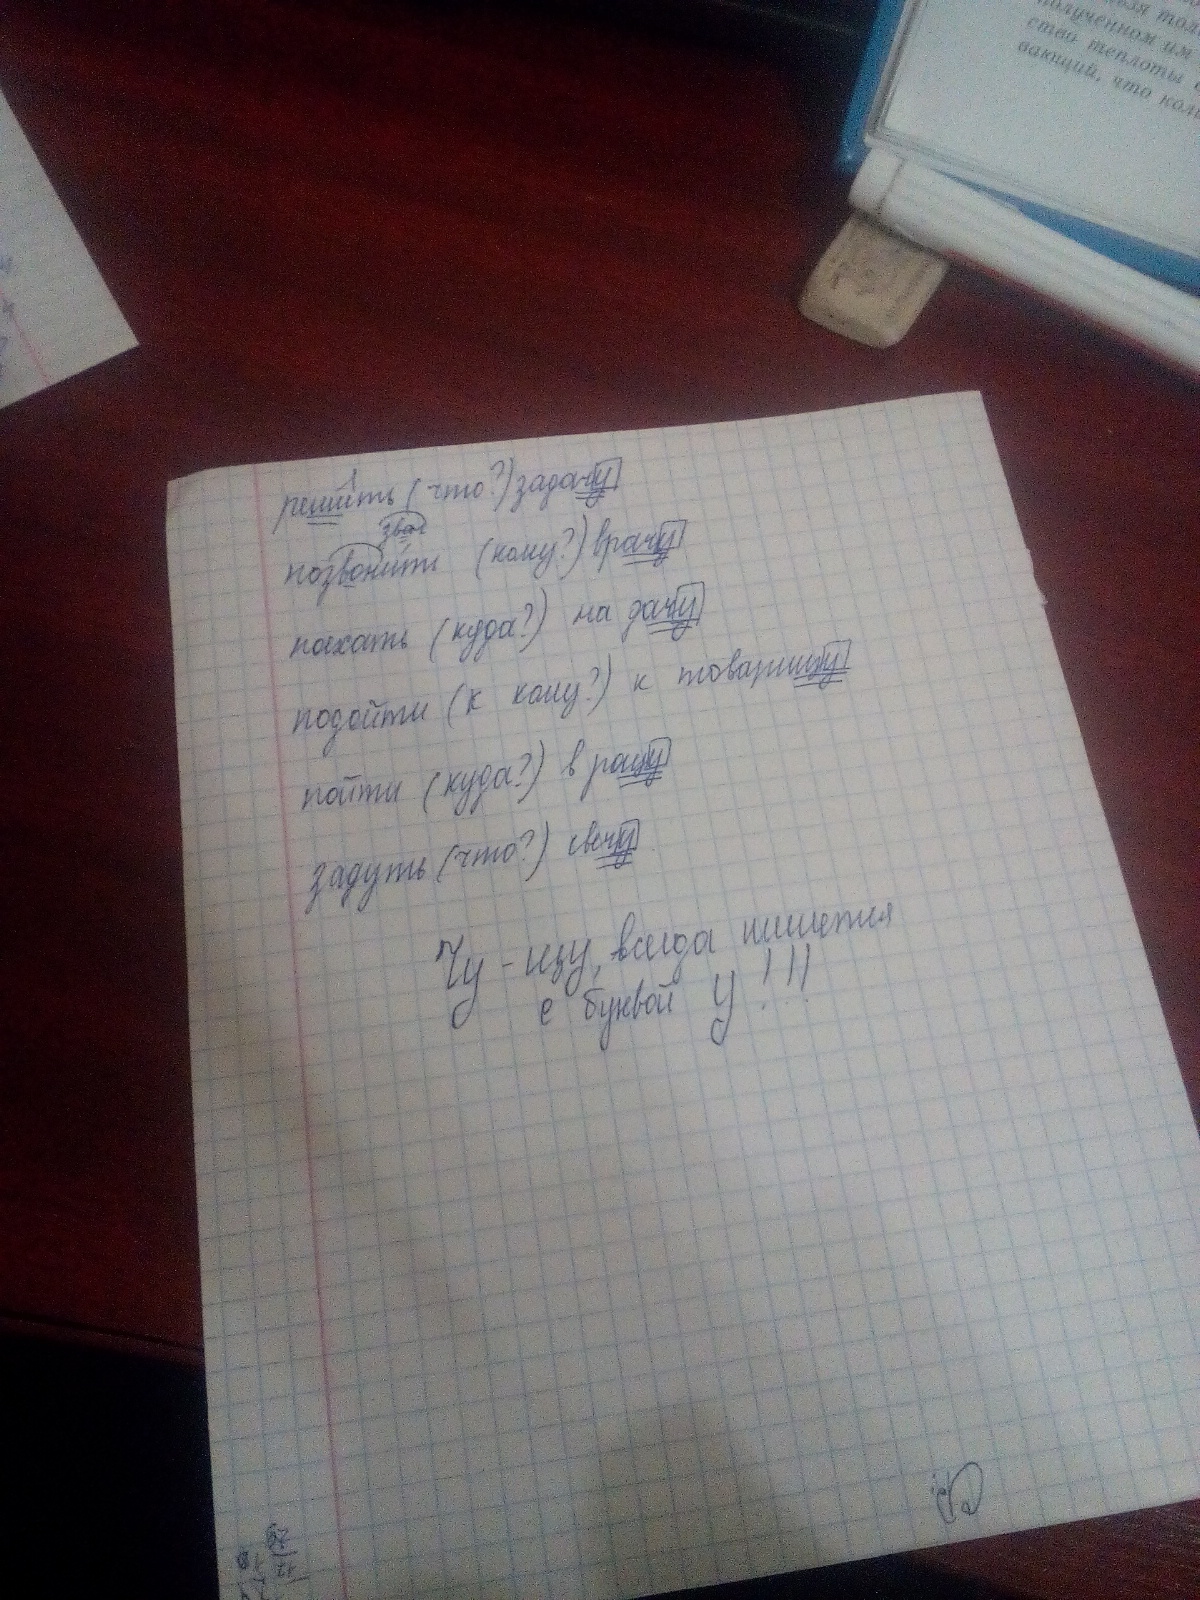 зя толь
полученном им
ство теплоты
вающий, что коли
решить (что?) задачу
звон
позвонить (кому?) врачу
поехать (куда?) на дачу
подойти (к кому?) к товарищу
пойти (куда?) в рощу
задуть (что?) свечу
Чу - щу, всегда пишется
с буквой У!!!